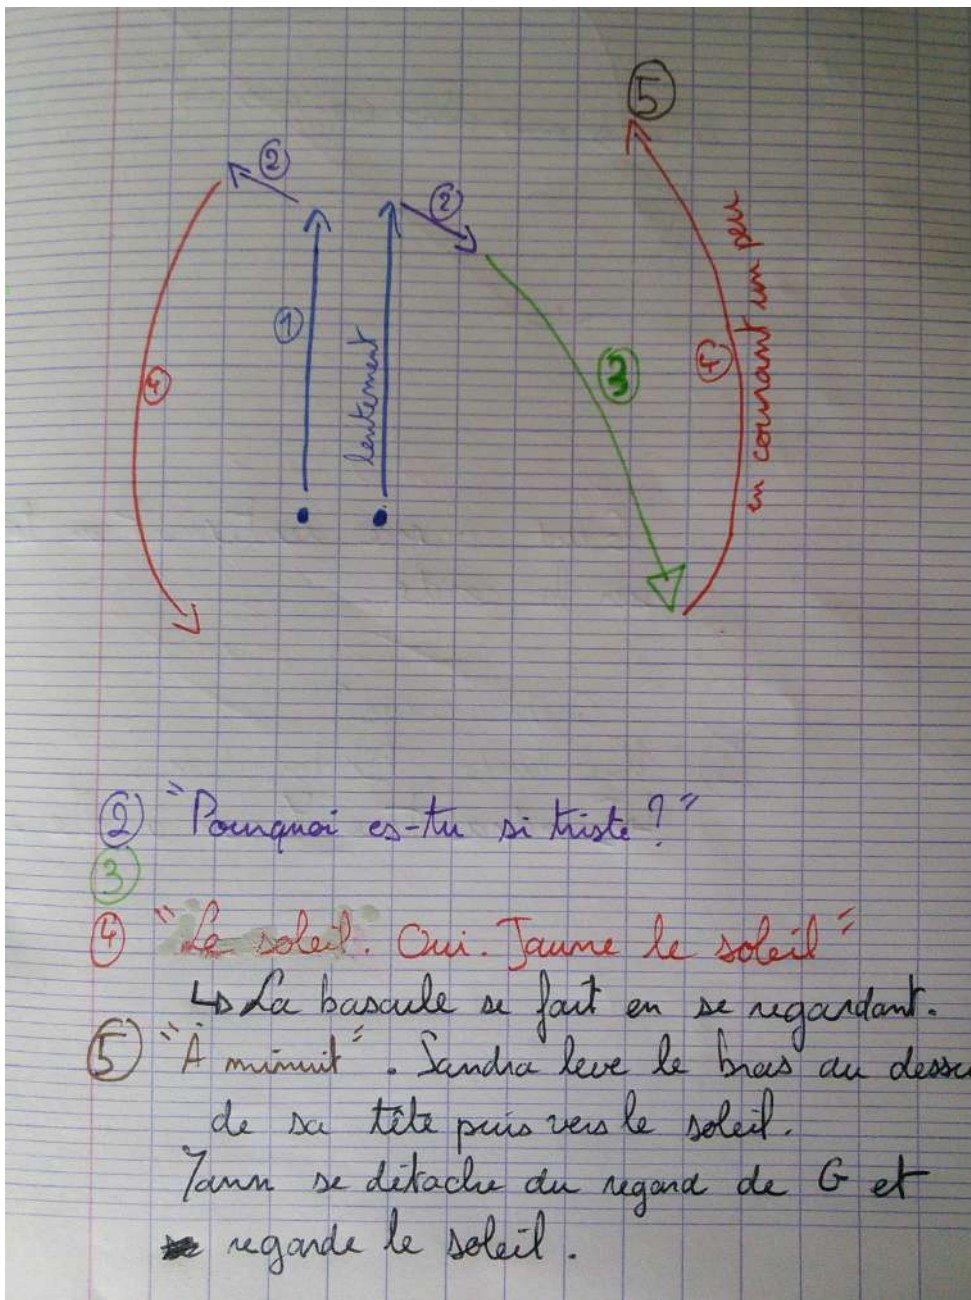 5
2
2
1
lentement
3
4
4
en courant un peu
2 "Pourquoi es-tu si triste ?"
3
4 "Le soleil. Oui. Jaune le soleil"
↳ La bascule se fait en se regardant.
5 "À minuit". Sandra leve le bras au dessu
de sa tête puis vers le soleil.
Yann se détache du regard de G et
regarde le soleil.